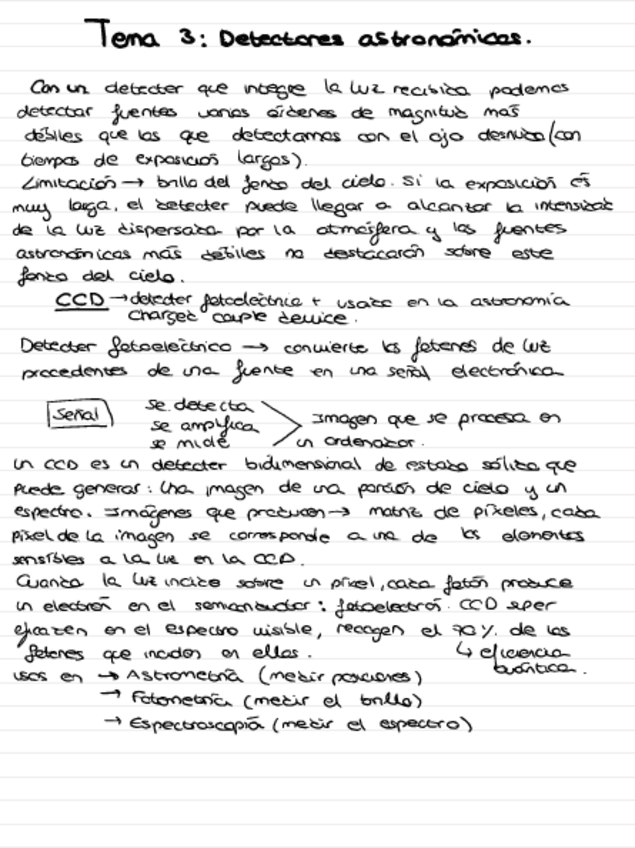 Tema 3: Detectores astronómicos.
Con un detector que integre la luz recibida podemos
detectar fuentes varios órdenes de magnitud más
débiles que las que detectamos con el ojo desnudo (con
tiempos de exposición largos).
Limitación → brillo del fondo del cielo. Si la exposición es
muy larga, el detector puede llegar a alcanzar la intensidad
de la luz dispersada por la atmósfera y las fuentes
astronómicas más débiles no destacarán sobre este
fondo del cielo.
CCD → detector fotoeléctrico + usado en la astronomía
charged couple device.
Detector fotoeléctrico → convierte los fotones de luz
procedentes de una fuente en una señal electrónica
Señal
se detecta
se amplifica
se mide
Imagen que se procesa en
un ordenador.
Un CCD es un detector bidimensional de estado sólido que
puede generar: Una imagen de una porción de cielo y un
espectro. Imágenes que producen → matriz de píxeles, cada
píxel de la imagen se corresponde a una de los elementos
sensibles a la luz en la CCD.
Cuando la luz incide sobre un píxel, cada fotón produce
un electrón en el semiconductor: fotoelectrón. CCD super
eficazen en el espectro visible, recogen el 70%. de los
fotones que inciden en ellos.
↳ eficiencia
cuántica.
usos en → Astrometría (medir posiciones)
→ Fotometría (medir el brillo)
→ Espectroscopía (medir el espectro)